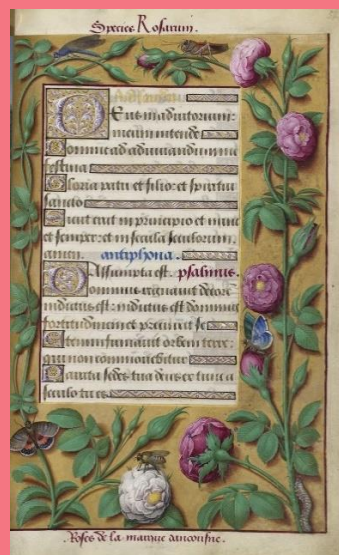 Species Rosarum.
Deus in adiutorium:
meum intende
Domine ad adiuuandum me
festina
Gloria patri et filio: et spiritui
sancto
Sicut erat in principio et nunc
et semper: et in secula seculorum.
amen. antiphona.
Assumpta est. psalmus.
Dominus regnauit decore
indutus est: indutus est dominus
fortitudinem et precinxit se
Etenim firmauit orbem terre:
qui non commouebitur
Parata sedes tua deus ex tunc a
seculo tu es.
Roses de la marque